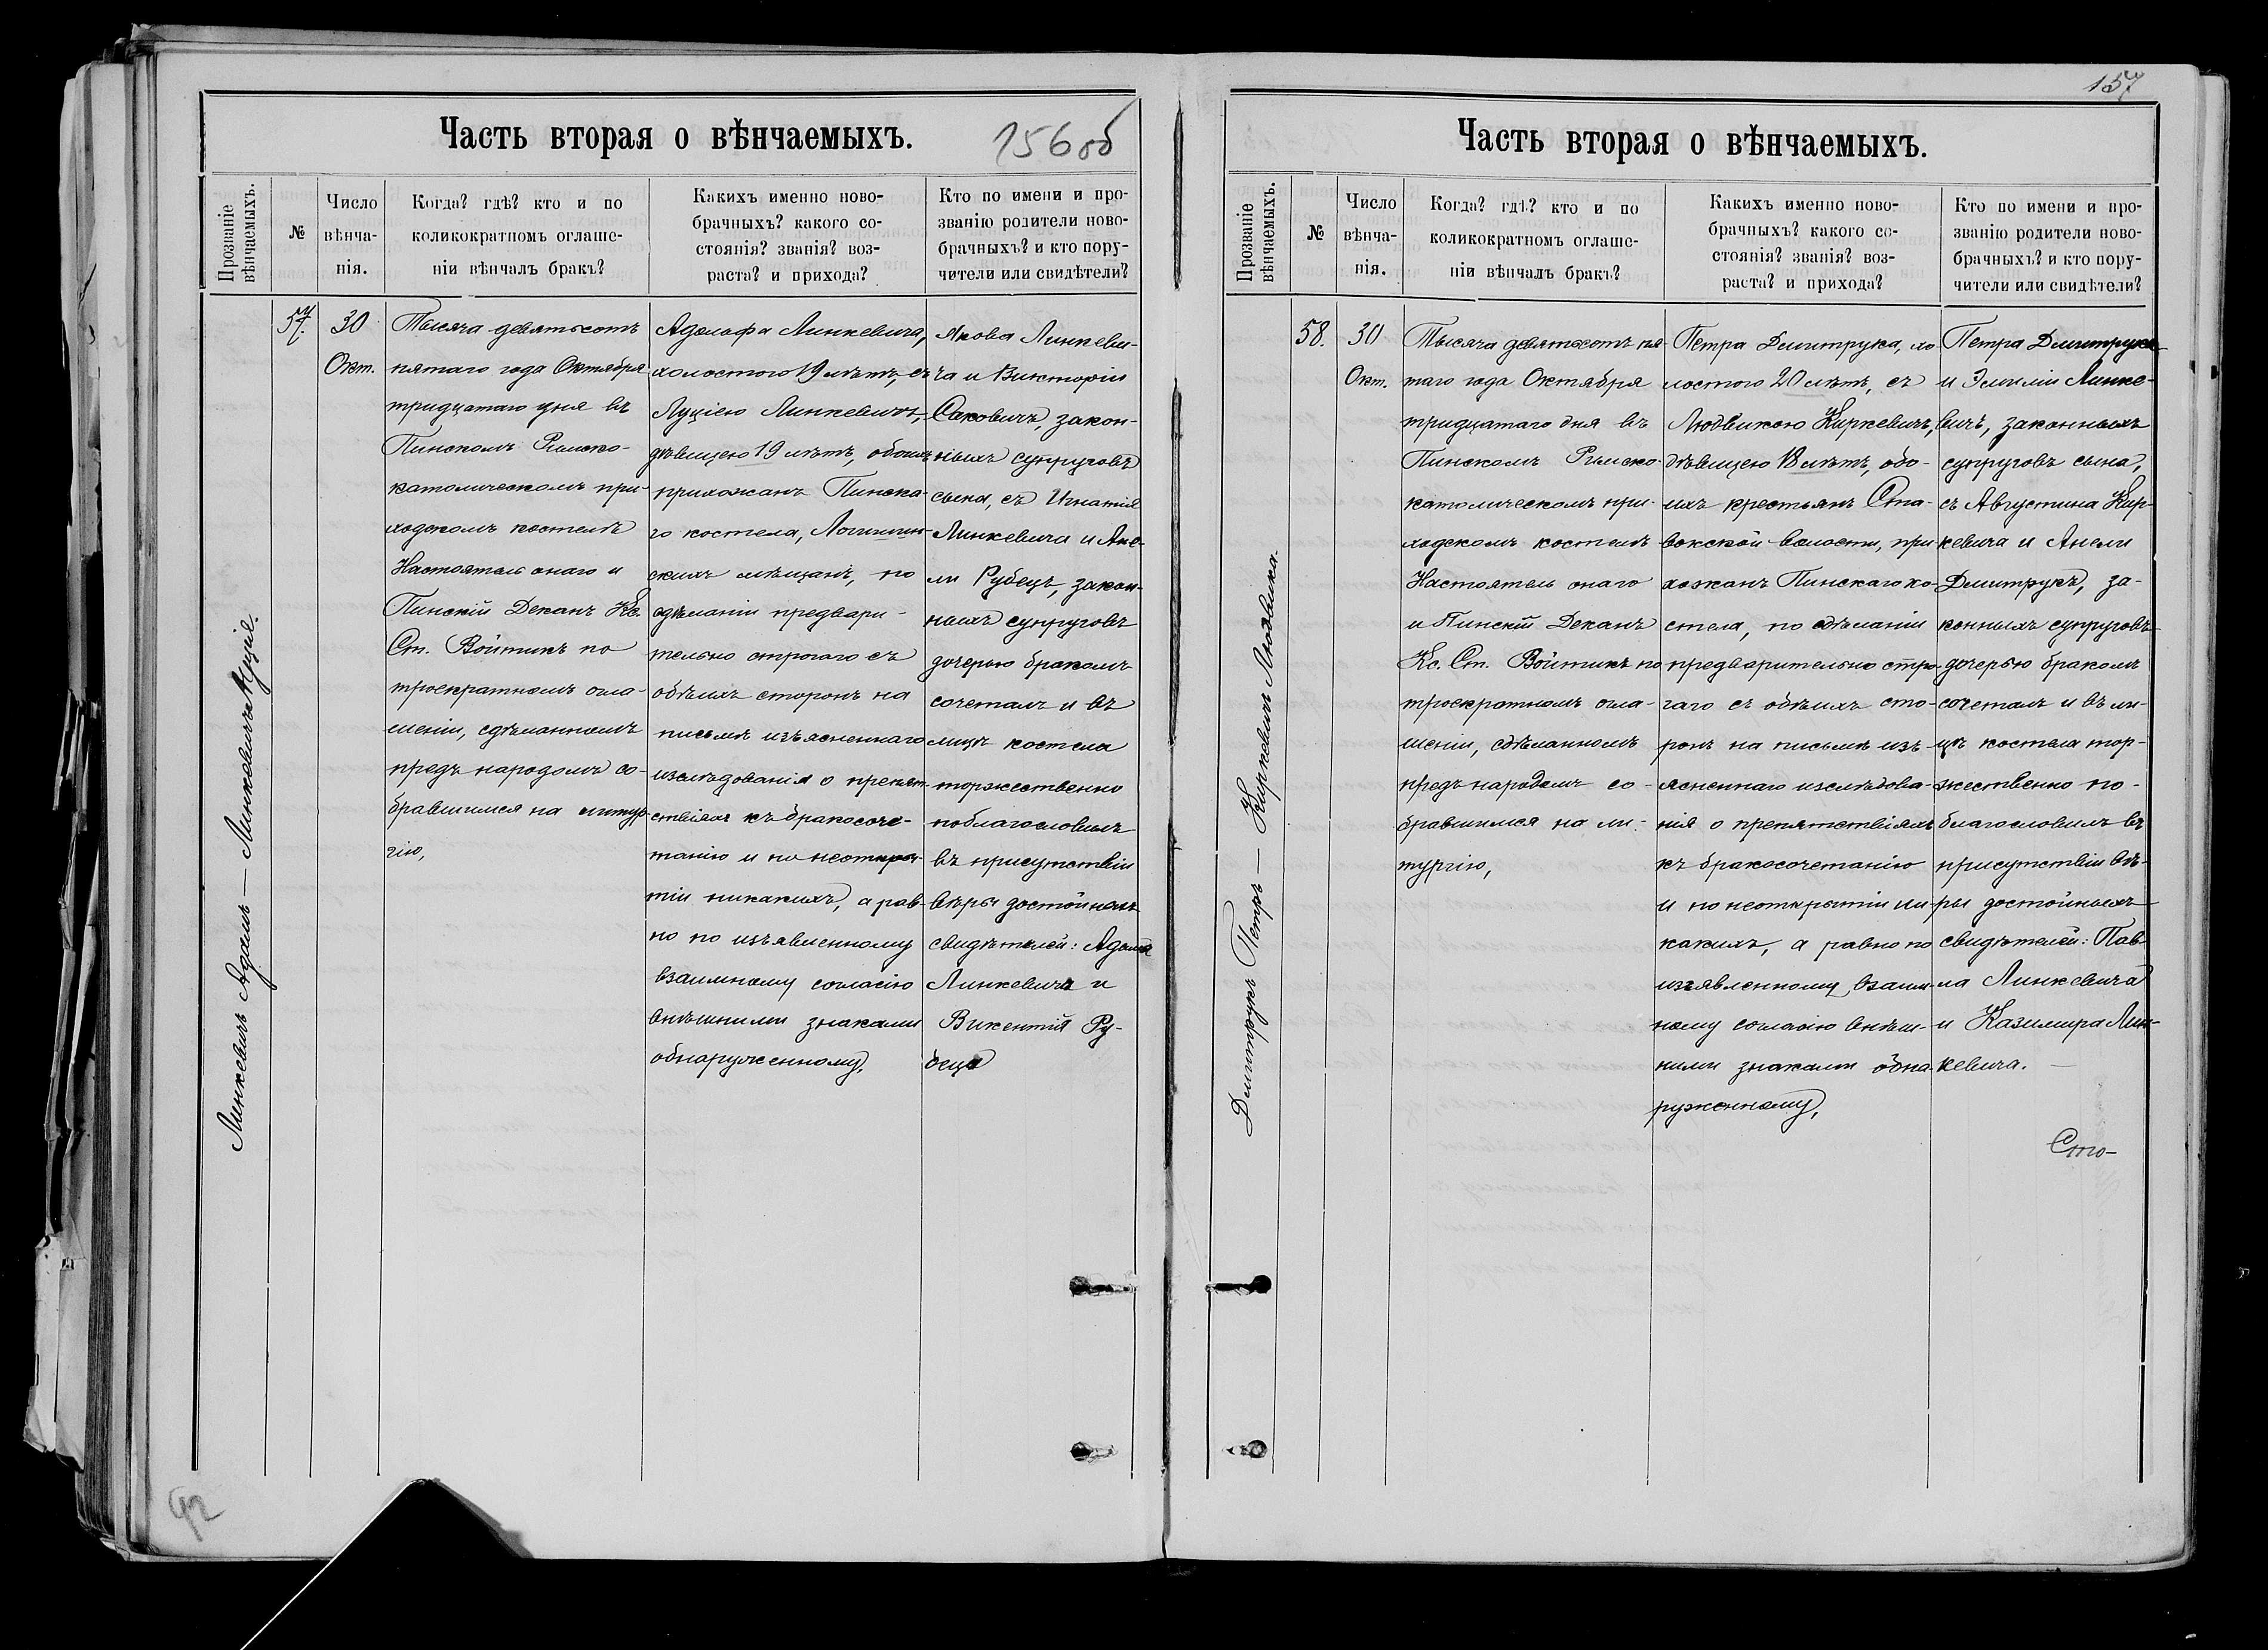 Часть вторая о вѣнчаемыхъ.
156об
Прозваніе
вѣнчаемыхъ.
№
Число
вѣнча-
нія.
Когда? гдѣ? кто и по
коликократномъ оглаше-
ніи вѣнчалъ бракъ?
Какихъ именно ново-
брачныхъ? какого со-
стоянія? званія? воз-
раста? и прихода?
Кто по имени и про-
званію родители ново-
брачныхъ? и кто пору-
чители или свидѣтели?
Линкевичъ Адамъ — Линкевичъ Луція.
57.
30
Окт.
Тысяча девятьсотъ
пятаго года Октября
тридцатаго дня въ
Пинскомъ Римско-
католическомъ при-
ходскомъ костелѣ
Настоятель онаго и
Пинскій Деканъ Кс.
Ст. Войтикъ по
троекратномъ огла-
шеніи, сдѣланномъ
предъ народомъ со-
бравшимся на литур-
гію,
Адольфа Линкевича,
холостого 19 лѣтъ, съ
Луціею Линкевичъ,
дѣвицею 19 лѣтъ, обоихъ
прихожанъ Пинска-
го костела, Логишин-
скихъ мѣщанъ, по
сдѣланіи предвари-
тельно строгаго съ
обѣихъ сторонъ на
письмѣ изъясненнаго
изслѣдованія о препят-
ствіяхъ къ бракосоче-
танію и по неоткры-
тіи никакихъ, а рав-
но по изъявленному
взаимному согласію
внѣшними знаками
обнаруженному,
Якова Линкеви-
ча и Викторіи
Саковичъ, закон-
ныхъ супруговъ
сына, съ Игнатія
Линкевича и Ане-
ли Рубецъ, закон-
ныхъ супруговъ
дочерью бракомъ
сочеталъ и въ
лицѣ костела
торжественно
поблагословилъ
въ присутствіи
вѣры достойныхъ
свидѣтелей: Адама
Линкевича и
Викентія Ру-
беца
92
157
Часть вторая о вѣнчаемыхъ.
Прозваніе
вѣнчаемыхъ.
№
Число
вѣнча-
нія.
Когда? гдѣ? кто и по
коликократномъ оглаше-
ніи вѣнчалъ бракъ?
Какихъ именно ново-
брачныхъ? какого со-
стоянія? званія? воз-
раста? и прихода?
Кто по имени и про-
званію родители ново-
брачныхъ? и кто пору-
чители или свидѣтели?
Дмитрукъ Петръ — Киркевичъ Людвика.
58.
30
Окт.
Тысяча девятьсотъ пя-
таго года Октября
тридцатаго дня въ
Пинскомъ Римско-
католическомъ при-
ходскомъ костелѣ
Настоятель онаго
и Пинскій Деканъ
Кс. Ст. Войтикъ по
троекратномъ огла-
шеніи, сдѣланномъ
предъ народомъ со-
бравшимся на ли-
тургію,
Петра Дмитрука, хо
лостого 20 лѣтъ, съ
Людвикою Киркевичъ,
дѣвицею 18 лѣтъ, обо-
ихъ крестьянъ Ста-
вокской волости, при
хожанъ Пинскаго ко-
стела, по сдѣланіи
предварительно стро-
гаго съ обѣихъ сто-
ронъ на письмѣ изъ-
ясненнаго изслѣдова-
нія о препятствіяхъ
къ бракосочетанію
и по неоткрытіи ни
какихъ, а равно по
изъявленному взаим-
ному согласію внѣш-
ними знаками обна-
руженному,
Петра Дмитрука
и Эмиліи Линке-
вичъ, законныхъ
супруговъ сына,
съ Августина Кир-
кевича и Анели
Дмитрукъ, за-
конныхъ супруговъ
дочерью бракомъ
сочеталъ и въ ли-
цѣ костела тор-
жественно по-
благословилъ въ
присутствіи вѣ-
ры достойныхъ
свидѣтелей: Пав-
ла Линкевича
и Казимира Лин-
кевича. —
Сто-